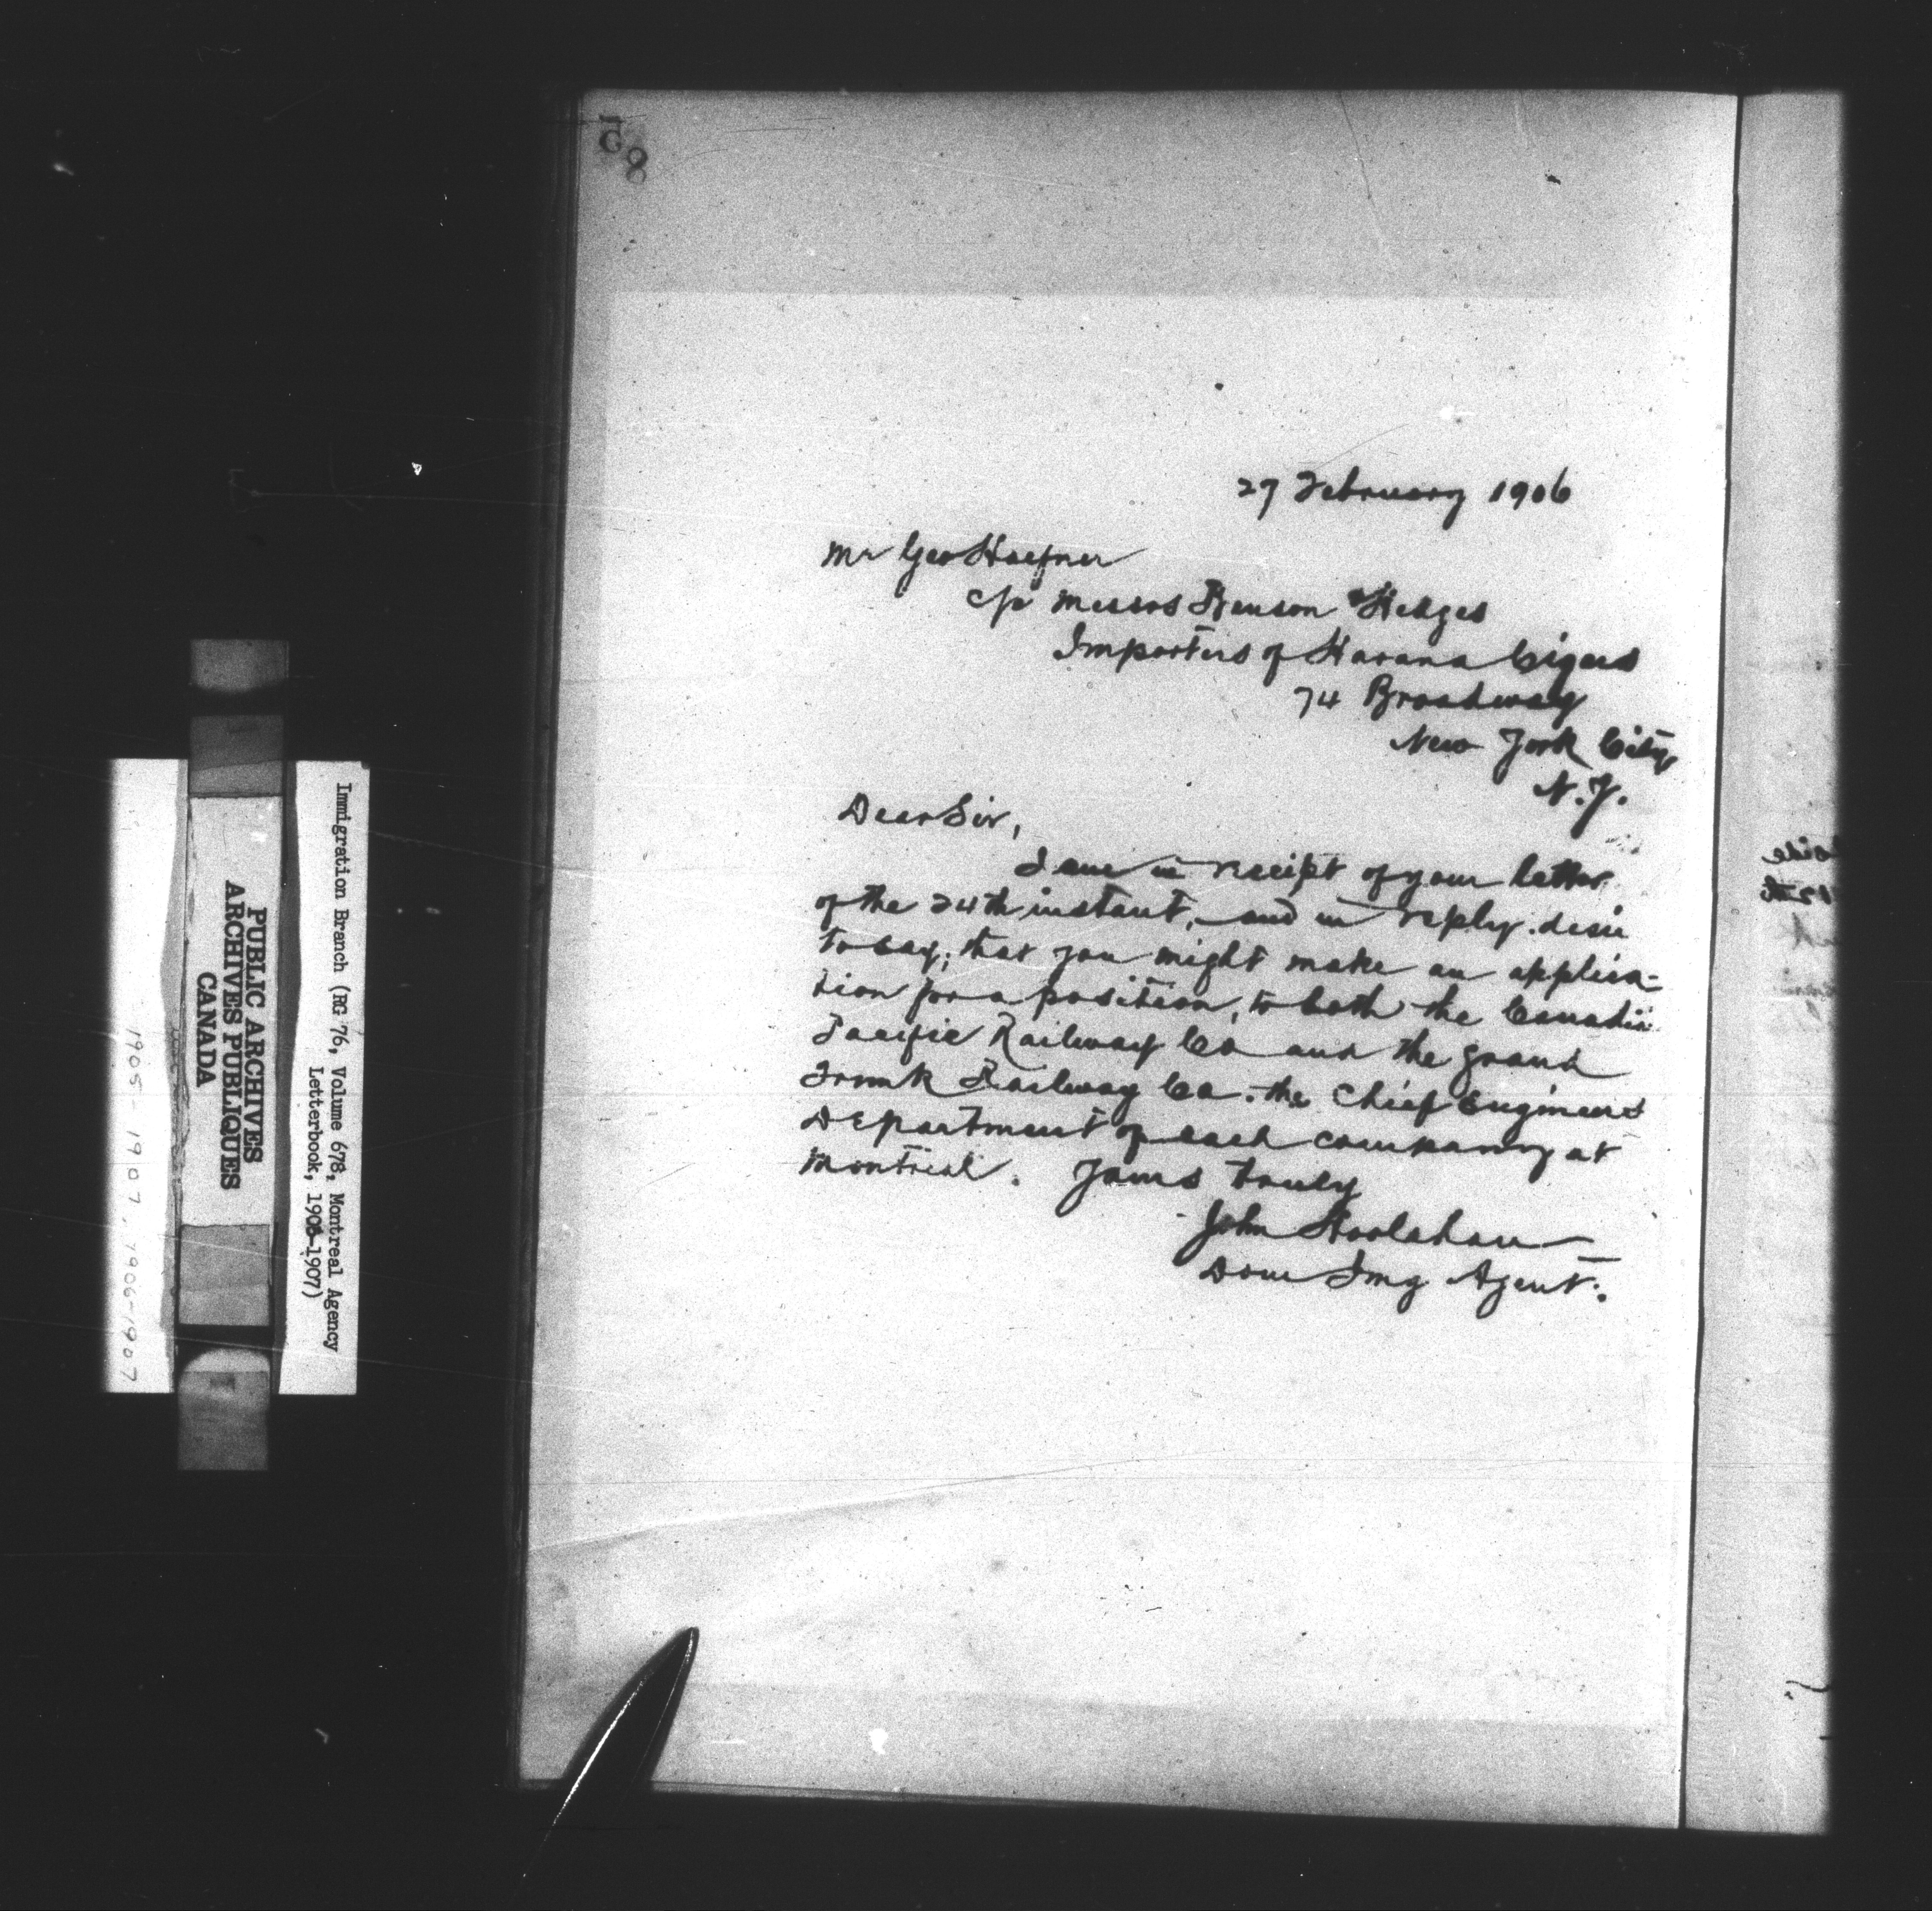 27 February 1906
Mr Geo Haefner
c/o Messrs Benson & Hedges
Importers of Havana Cigars
74 Broadway
New York City
N.Y.
Dear Sir,
I am in receipt of your letter
of the 24th instant, and in reply desire
to say, that you might make an applica-
tion for a position, to both the Canadian
Pacific Railway Co and the Grand
Trunk Railway Co. the Chief Engineers
Department of each company at
Montreal. Yours truly
John Hoolahan
Dom Img Agent.
Immigration Branch (RG 76, Volume 678, Montreal Agency
Letterbook, 1905-1907)
PUBLIC ARCHIVES
ARCHIVES PUBLIQUES
CANADA
1905-1907, 1906-1907